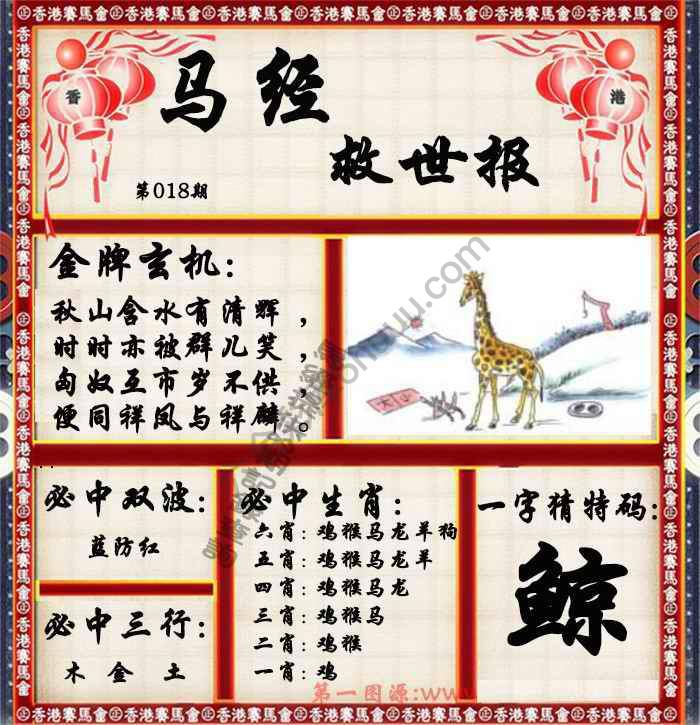 香港賽馬會
马经
救世报
香
港
第018期
金牌玄机：
秋山含水有清辉，
时时亦被群儿笑，
匈奴互市岁不供，
便同祥凤与祥麟。
大
小
必中双波：
蓝防红
必中三行：
木 金 土
必中生肖：
六肖：鸡猴马龙羊狗
五肖：鸡猴马龙羊
四肖：鸡猴马龙
三肖：鸡猴马
二肖：鸡猴
一肖：鸡
一字猜特码：
鲸
第一图源:www